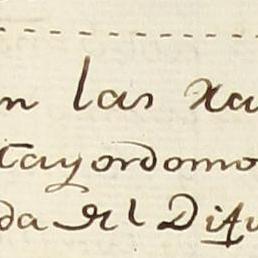 n las Xa
tayordomo
da del Difu